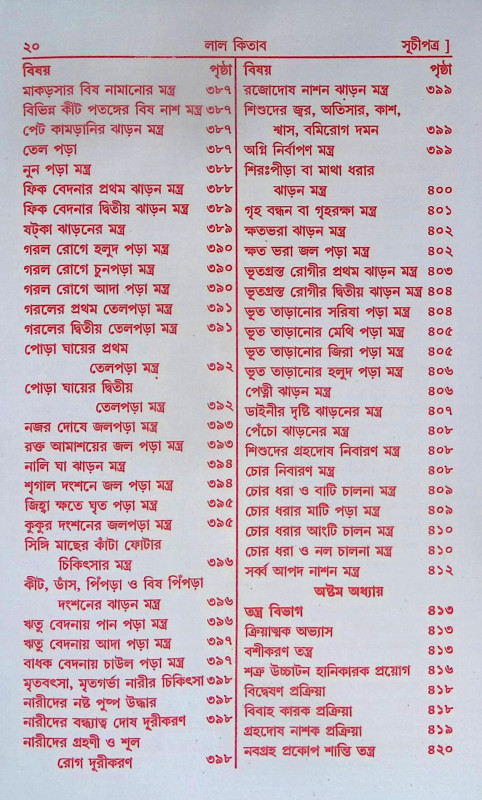 ২০ লাল কিতাব সূচীপত্র ]
বিষয় পৃষ্ঠা
মাকড়সার বিষ নামানোর মন্ত্র ৩৮৭
বিভিন্ন কীট পতঙ্গের বিষ নাশ মন্ত্র ৩৮৭
পেট কামড়ানির ঝাড়ন মন্ত্র ৩৮৭
তেল পড়া ৩৮৭
নুন পড়া মন্ত্র ৩৮৮
ফিক বেদনার প্রথম ঝাড়ন মন্ত্র ৩৮৮
ফিক বেদনার দ্বিতীয় ঝাড়ন মন্ত্র ৩৮৯
ষট্‌কা ঝাড়নের মন্ত্র ৩৮৯
গরল রোগে হলুদ পড়া মন্ত্র ৩৯০
গরল রোগে চুনপড়া মন্ত্র ৩৯০
গরল রোগে আদা পড়া মন্ত্র ৩৯০
গরলের প্রথম তেলপড়া মন্ত্র ৩৯১
গরলের দ্বিতীয় তেলপড়া মন্ত্র ৩৯১
পোড়া ঘায়ের প্রথম
তেলপড়া মন্ত্র ৩৯২
পোড়া ঘায়ের দ্বিতীয়
তেলপড়া মন্ত্র ৩৯২
নজর দোষে জলপড়া মন্ত্র ৩৯৩
রক্ত আমাশয়ের জল পড়া মন্ত্র ৩৯৩
নালি ঘা ঝাড়ন মন্ত্র ৩৯৪
শৃগাল দংশনে জল পড়া মন্ত্র ৩৯৪
জিহ্বা ক্ষতে ঘৃত পড়া মন্ত্র ৩৯৫
কুকুর দংশনের জলপড়া মন্ত্র ৩৯৫
সিঙ্গি মাছের কাঁটা ফোটার
চিকিৎসার মন্ত্র ৩৯৬
কীট, ডাঁস, পিঁপড়া ও বিষ পিঁপড়া
দংশনের ঝাড়ন মন্ত্র ৩৯৬
ঋতু বেদনায় পান পড়া মন্ত্র ৩৯৬
ঋতু বেদনায় আদা পড়া মন্ত্র ৩৯৭
বাধক বেদনায় চাউল পড়া মন্ত্র ৩৯৭
মৃতবৎসা, মৃতগর্ভা নারীর চিকিৎসা ৩৯৮
নারীদের নষ্ট পুষ্প উদ্ধার ৩৯৮
নারীদের বন্ধ্যাত্ব দোষ দূরীকরণ ৩৯৮
নারীদের গ্রহণী ও শূল
রোগ দূরীকরণ ৩৯৮
বিষয় পৃষ্ঠা
রজোদোষ নাশন ঝাড়ন মন্ত্র ৩৯৯
শিশুদের জ্বর, অতিসার, কাশ,
শ্বাস, বমিরোগ দমন ৩৯৯
অগ্নি নির্বাপণ মন্ত্র ৩৯৯
শিরঃপীড়া বা মাথা ধরার
ঝাড়ন মন্ত্র ৪০০
গৃহ বন্ধন বা গৃহরক্ষা মন্ত্র ৪০১
ক্ষতভরা ঝাড়ন মন্ত্র ৪০২
ক্ষত ভরা জল পড়া মন্ত্র ৪০২
ভূতগ্রস্ত রোগীর প্রথম ঝাড়ন মন্ত্র ৪০৩
ভূতগ্রস্ত রোগীর দ্বিতীয় ঝাড়ন মন্ত্র ৪০৪
ভূত তাড়ানোর সরিষা পড়া মন্ত্র ৪০৪
ভূত তাড়ানোর মেথি পড়া মন্ত্র ৪০৫
ভূত তাড়ানোর জিরা পড়া মন্ত্র ৪০৫
ভূত তাড়ানোর হলুদ পড়া মন্ত্র ৪০৬
পেত্নী ঝাড়ন মন্ত্র ৪০৬
ডাইনীর দৃষ্টি ঝাড়নের মন্ত্র ৪০৭
পেঁচো ঝাড়নের মন্ত্র ৪০৮
শিশুদের গ্রহদোষ নিবারণ মন্ত্র ৪০৮
চোর নিবারণ মন্ত্র ৪০৮
চোর ধরা ও বাটি চালনা মন্ত্র ৪০৯
চোর ধরার মাটি পড়া মন্ত্র ৪০৯
চোর ধরার আংটি চালন মন্ত্র ৪১০
চোর ধরা ও নল চালনা মন্ত্র ৪১০
সর্ব্ব আপদ নাশন মন্ত্র ৪১২
অষ্টম অধ্যায়
তন্ত্র বিভাগ ৪১৩
ক্রিয়াত্মক অভ্যাস ৪১৩
বশীকরণ তন্ত্র ৪১৩
শত্রু উচ্চাটন হানিকারক প্রয়োগ ৪১৬
বিদ্বেষণ প্রক্রিয়া ৪১৮
বিবাহ কারক প্রক্রিয়া ৪১৮
গ্রহদোষ নাশক প্রক্রিয়া ৪১৯
নবগ্রহ প্রকোপ শান্তি তন্ত্র ৪২০